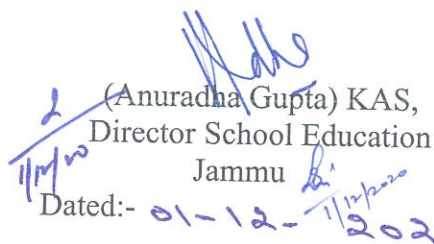 (Anuradha Gupta) KAS,
Director School Education
Jammu
1/12/20
1/12/2020
Dated:- 01-12-202